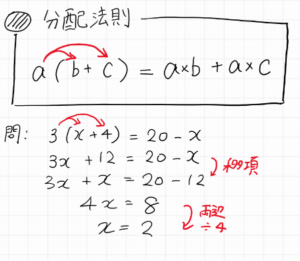 分配法則
a(b+c)=a×b+a×c
問: 3(x+4)=20-x
3x+12=20-x
移項
3x+x=20-12
4x=8
両辺
÷4
x=2